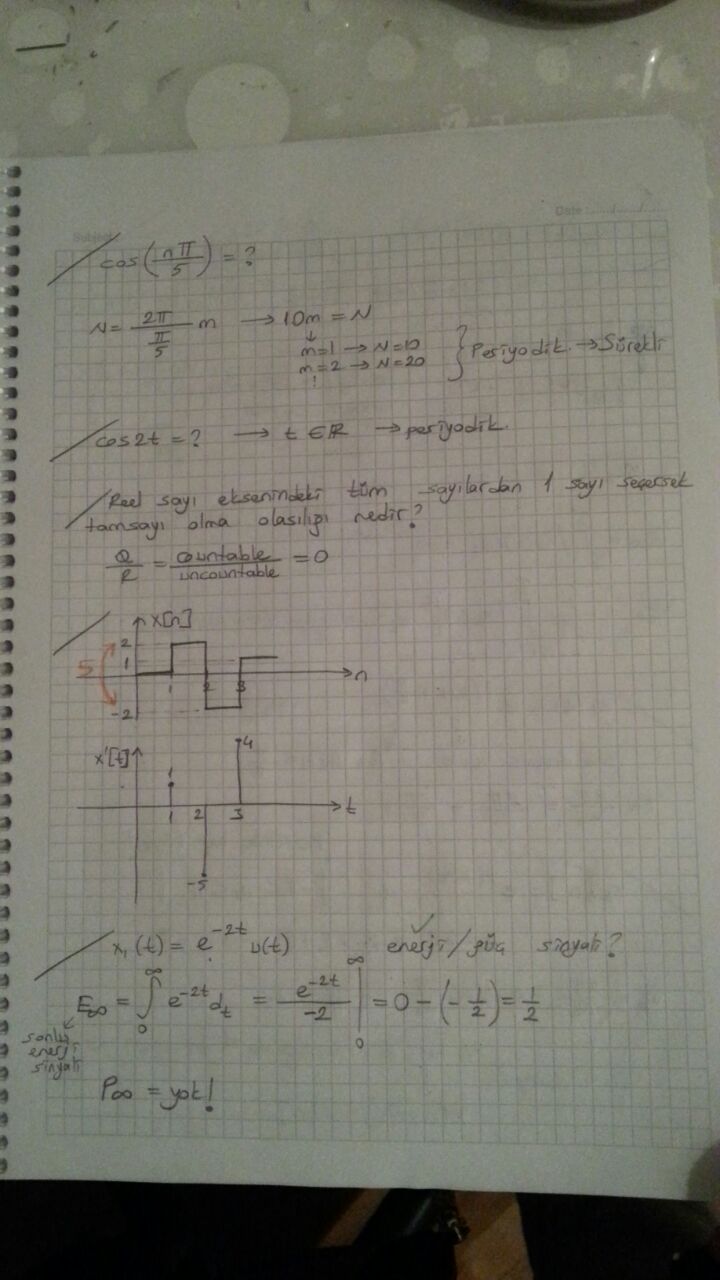 Date : ...../...../.....
cos(nπ/5) = ?
N = 2π/(π/5) m → 10m = N
m=1 → N=10
m=2 → N=20
} Periyodik → Sürekli
cos2t = ? → t ∈ R → periyodik
Reel sayı eksenindeki tüm sayılardan 1 sayı seçersek
tamsayı olma olasılığı nedir?
Q/R = countable/uncountable = 0
x[n]
2
1
5
1 2 3 n
-2
x'[t]
4
1
1 2 3 t
-5
x₁(t) = e^-2t u(t) enerji/güç sinyali? ✓
E∞ = ∫₀^∞ e^-2t dt = e^-2t/-2 |₀^∞ = 0 - (-1/2) = 1/2
sonlu
enerji
sinyali
P∞ = yok!